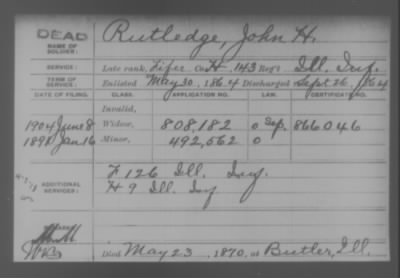 DEAD
NAME OF SOLDIER: Rutledge, John H.
SERVICE: Late rank, Fifer Co. H, 143 Reg't Ill. Inf.
TERM OF SERVICE: Enlisted May 30, 1864 Discharged Sept 26, 1864
DATE OF FILING. CLASS. APPLICATION NO. LAW. CERTIFICATE NO.
Invalid,
1904 June 8 Widow, 808,182 O Sep. 866046
1891 Jan 16 Minor, 492,562 O
ADDITIONAL SERVICES: F 126 Ill. Inf.
H 9 Ill. Inf
Died May 23, 1870, at Butler, Ill.